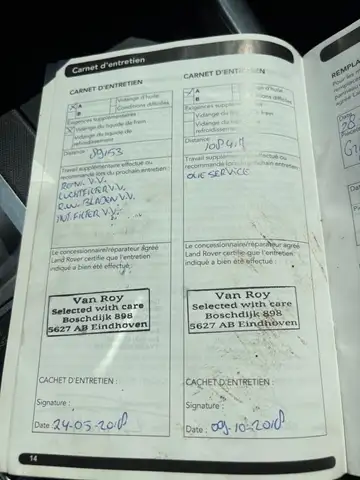 Carnet d'entretien
CARNET D'ENTRETIEN
A
B
Vidange d'huile
Conditions difficiles
Exigences supplémentaires :
Vidange du liquide de frein
Vidange du liquide de
refroidissement
Distance : 89153
Travail supplémentaire effectué ou
recommandé lors du prochain entretien :
V.V.
LUCHTFILTER V.V.
R.W. BLADEN V.V.
INT. FILTER V.V.
Le concessionnaire/réparateur agréé
Land Rover certifie que l'entretien
indiqué a bien été effectué :
Van Roy
Selected with care
Boschdijk 898
5627 AB Eindhoven
CACHET D'ENTRETIEN :
Signature :
Date : 24-05-2018
14
CARNET D'ENTRETIEN
A
B
Vidange d'huile
Conditions difficiles
Exigences
Vidange du
Vidange du
refroidissement
Distance :
Travail supplémentaire effectué ou
recommandé lors du prochain entretien :
OLIE SERVICE
Le concessionnaire/réparateur agréé
Land Rover certifie que l'entretien
indiqué a bien été effectué :
Van Roy
Selected with care
Boschdijk 898
5627 AB Eindhoven
CACHET D'ENTRETIEN :
Signature :
Date : 09-10-2018